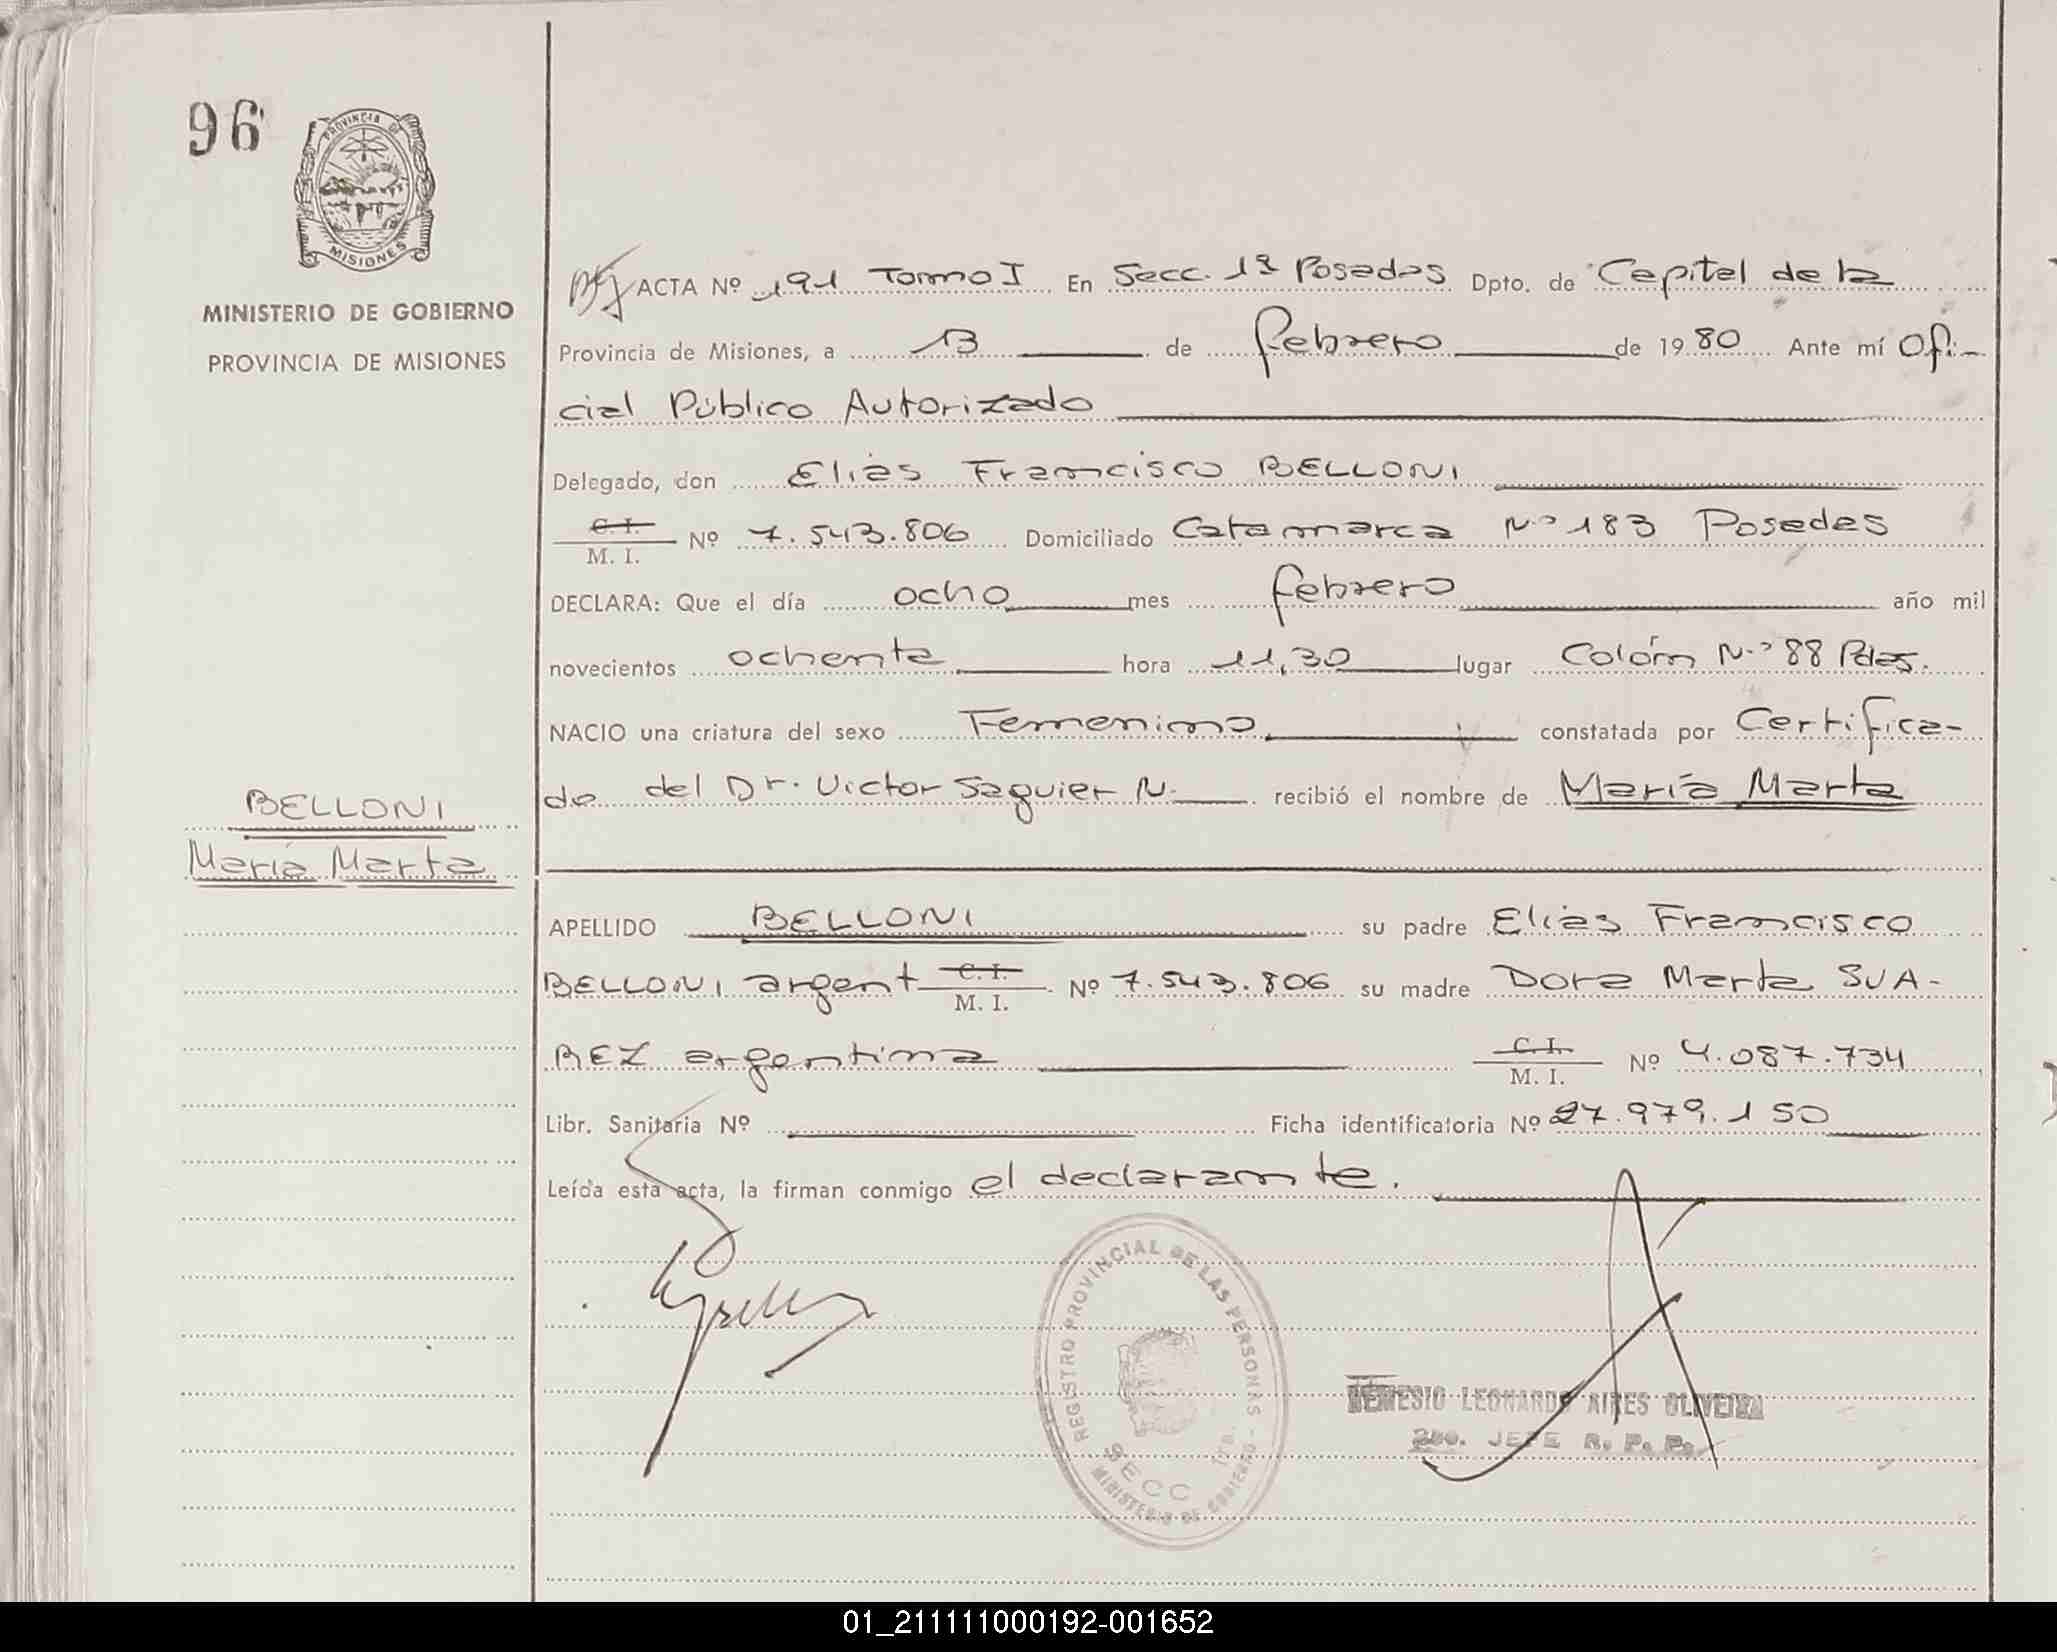 96
PROVINCIA DE
MISIONES
MINISTERIO DE GOBIERNO
PROVINCIA DE MISIONES
BELLONI
María Marta
ACTA Nº 191 Tomo I En Secc. 1ª Posadas Dpto. de Capital de la
Provincia de Misiones, a 13 de febrero de 1980 Ante mí Ofi-
cial Público Autorizado
Delegado, don Elías Francisco BELLONI
C. I. / M. I. Nº 7.543.806 Domiciliado Catamarca Nº 183 Posadas
DECLARA: Que el día ocho mes febrero año mil
novecientos ochenta hora 11,30 lugar Colón Nº 88 Pdas.
NACIO una criatura del sexo Femenino constatada por Certifica-
do del Dr. Victor Saguier N. recibió el nombre de María Marta
APELLIDO BELLONI su padre Elías Francisco
BELLONI argent C. I. / M. I. Nº 7.543.806 su madre Dora Marta SUA-
REZ argentina C. I. / M. I. Nº 4.087.734
Libr. Sanitaria Nº Ficha identificatoria Nº 27.979.150
Leída esta acta, la firman conmigo el declarante.
REGISTRO PROVINCIAL DE LAS PERSONAS
SECC
MINISTERIO DE GOBIERNO
NEMESIO LEONARDO AIRES OLIVEIRA
2do. JEFE R. P. P.
01_211111000192-001652